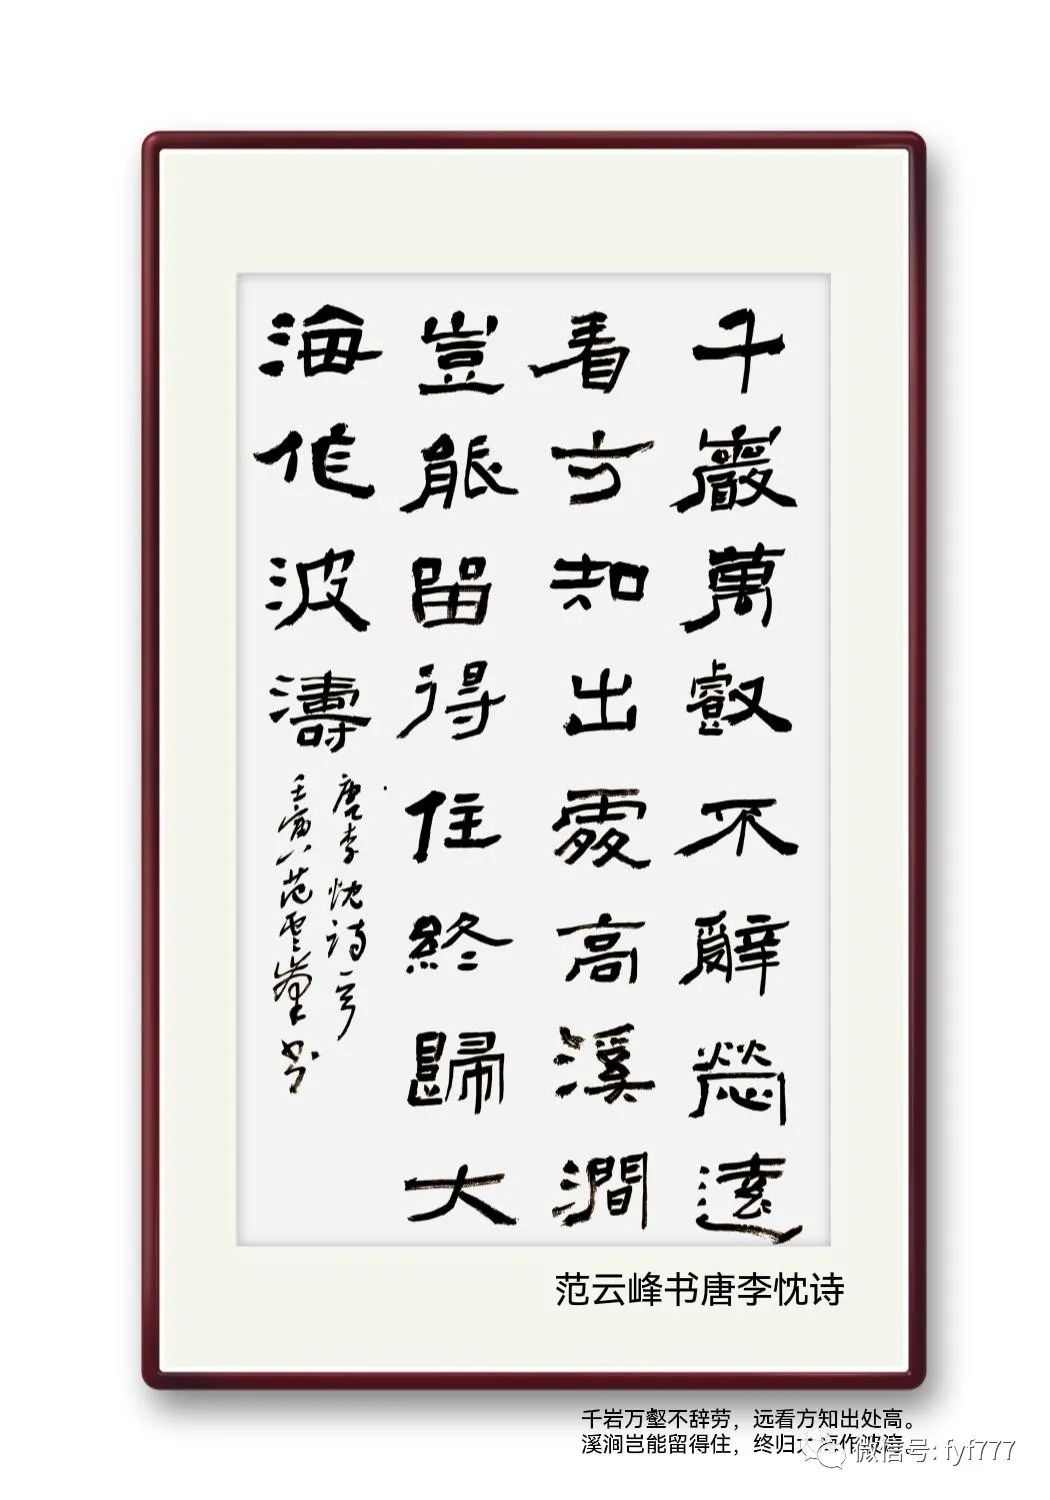 千巖萬叡不辭勞遠
看方知出處高溪澗
豈能留得住終歸大
海作波濤
唐李忱诗一首
壬寅八范雲峯书
范云峰书唐李忱诗
千岩万壑不辞劳，远看方知出处高。
溪涧岂能留得住，终归大海作波涛。
微信号: fyf777